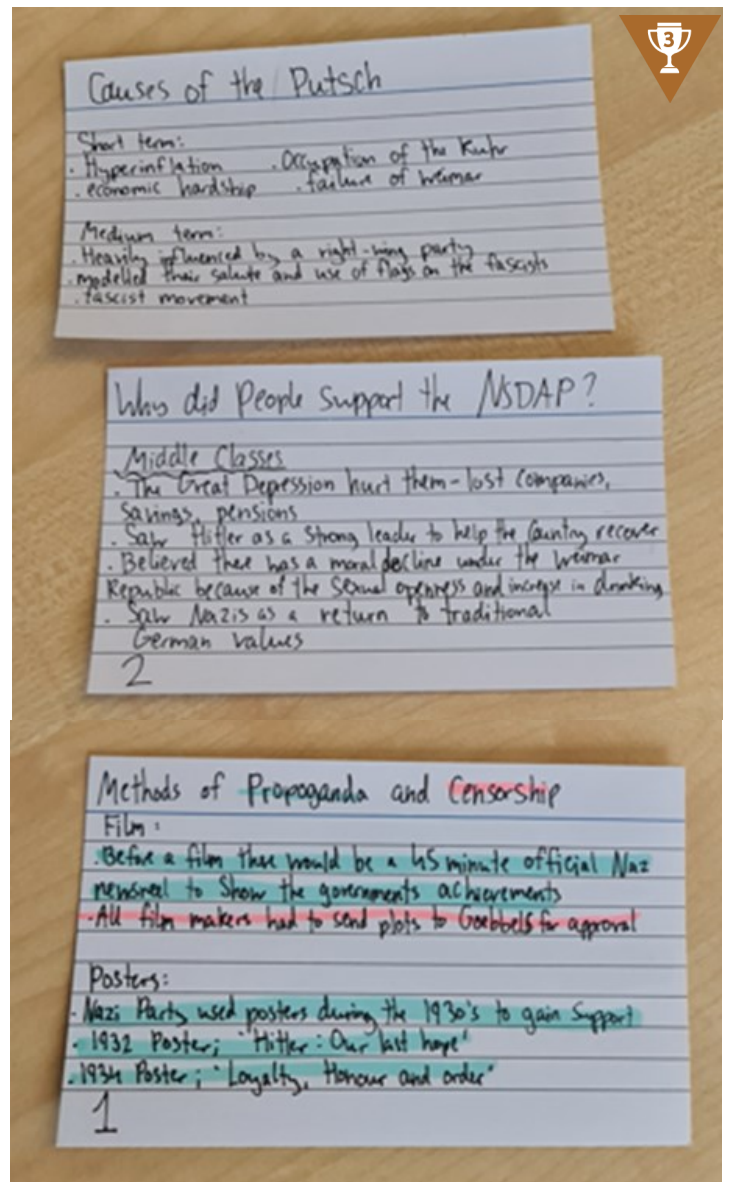 3
Causes of the Putsch
Short term:
. Hyperinflation . Occupation of the Ruhr
. economic hardship . failure of weimar
Medium term:
. Heavily influenced by a right-wing party
. modelled their salute and use of flags on the fascists
. fascist movement
Why did People Support the NSDAP?
Middle Classes
. The Great Depression hurt them - lost Companies,
Savings, pensions
. Saw Hitler as a Strong leader to help the Country recover
. Believed there was a moral decline under the weimar
Republic because of the Sexual openness and increase in drinking
. Saw Nazis as a return to traditional
German values
2
Methods of Propoganda and Censorship
Film:
. Before a film there would be a 45 minute official Naz
newsreel to Show the governments achievements
. All film makers had to send plots to Goebbels for approval
Posters:
. Nazi Party used posters during the 1930's to gain Support
. 1932 Poster; "Hitler: Our last hope"
. 1934 Poster; "Loyalty, Honour and order"
1